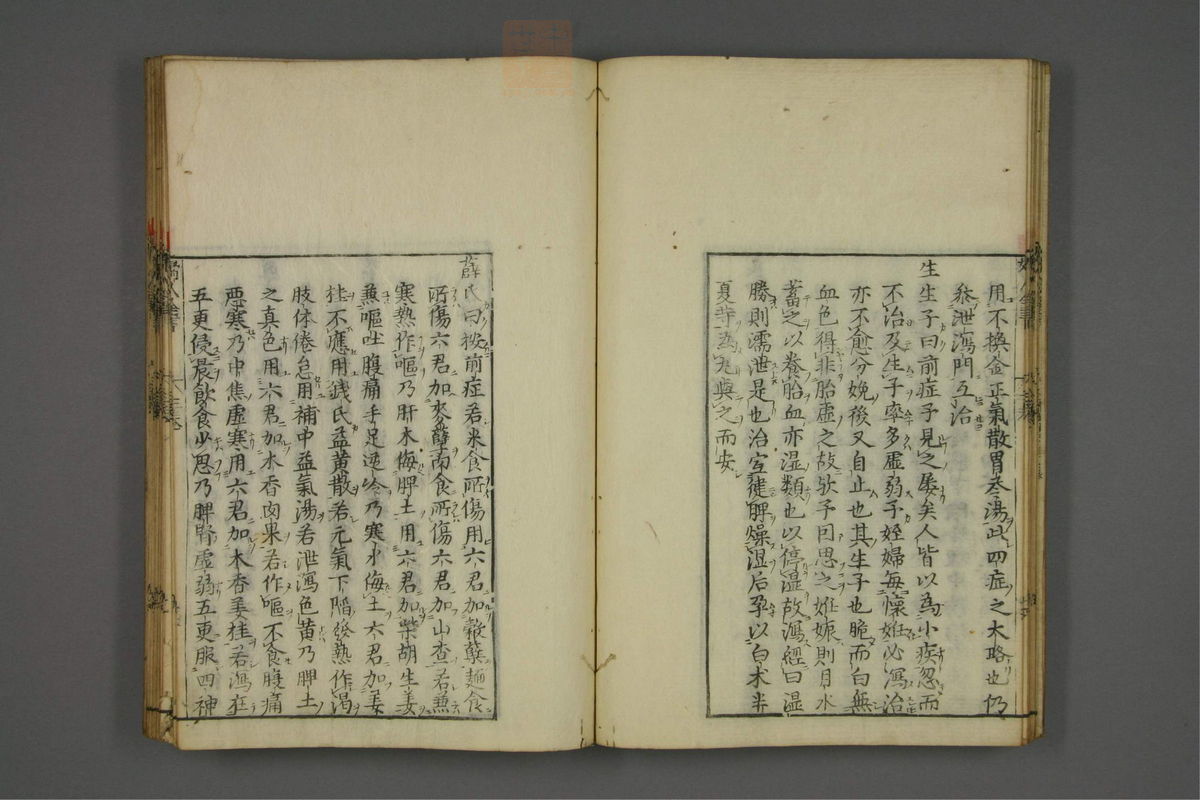 用不換金正氣散胃苓湯此四症之大略也仍
叅泄瀉門互治
生生子曰前症予見之屡矣人皆以為小疾忽而
不治及生子率多虛弱予姪婦每懷姙必瀉治
亦不愈分娩後又自止也其生子也脆而白無
血色得非胎虛之故欤予因思之姙娠則月水
蓄之以養胎血亦湿類也以停湿故瀉經曰湿
勝則濡泄是也治宜健脾燥湿后孕以白术半
夏等為丸與之而安
薛氏曰按前症若米食所傷用六君加穀蘖麺食
所傷六君加麥蘖肉食所傷六君加山查若兼
寒熱作嘔乃肝木侮脾土用六君加柴胡生姜
兼嘔吐腹痛手足逆冷乃寒水侮土六君加姜
桂不應用錢氏益黄散若元氣下陷發熱作渴
肢体倦怠用補中益氣湯若泄瀉色黄乃脾土
之真色用六君加木香肉果若作嘔不食腹痛
悪寒乃中焦虛寒用六君加木香姜桂若瀉在
五更侵晨飲食少思乃脾腎虛弱五更服四神